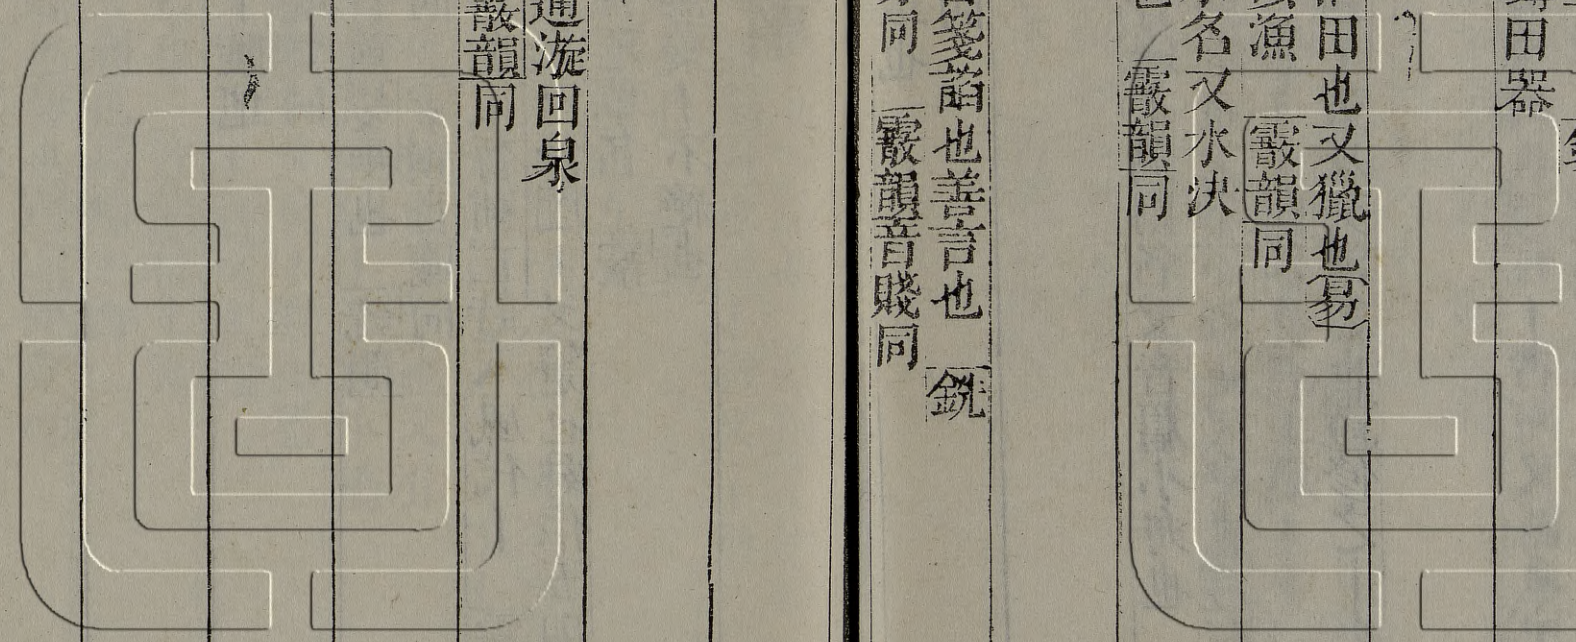 田器
田也又獵也易
漁　霰韻同
名又水決
霰韻同
箋諂也善言也　銑
同　霰韻音賤同
通漩回泉
霰韻同